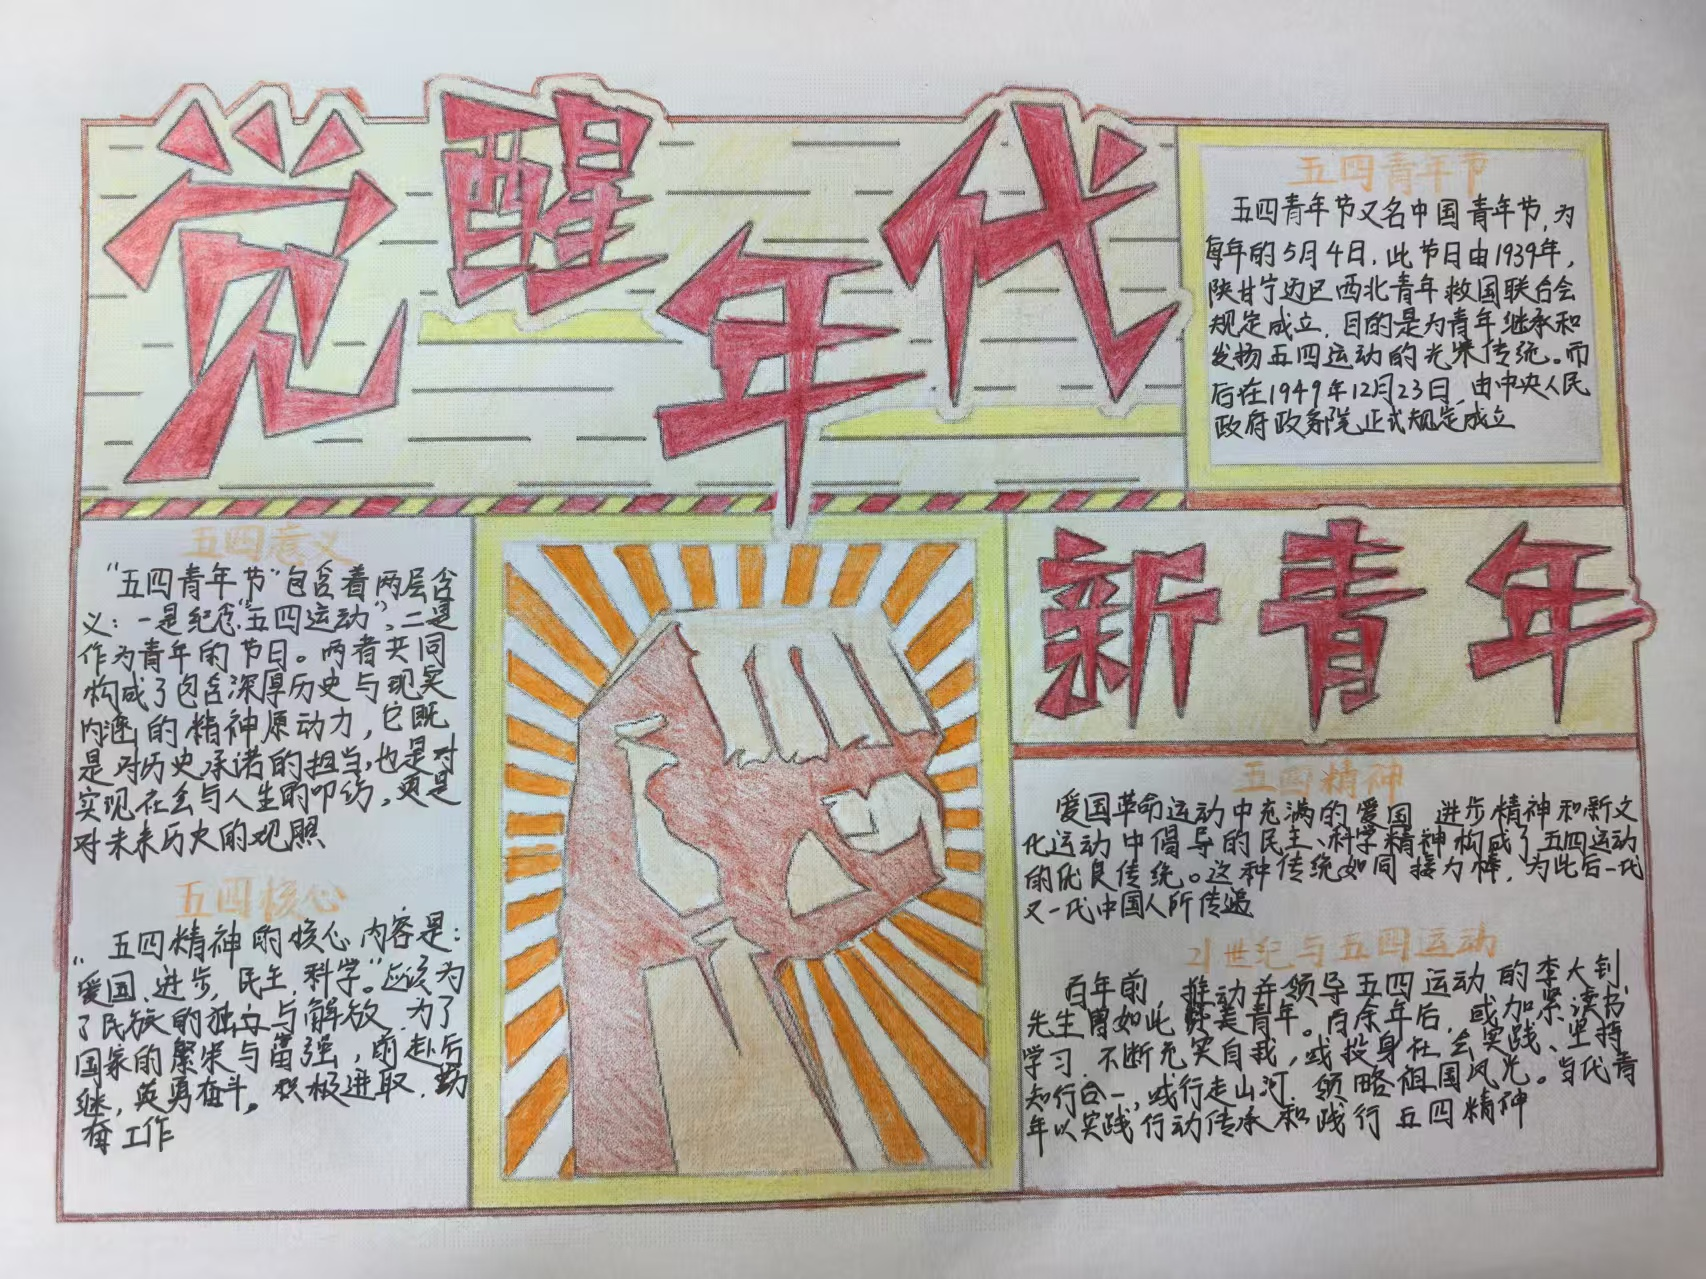 觉醒年代
五四青年节
五四青年节又名中国青年节,为
每年的5月4日,此节日由1939年,
陕甘宁边区西北青年救国联合会
规定成立,目的是为青年继承和
发扬五四运动的光荣传统。而
后在1949年12月23日,由中央人民
政府政务院正式规定成立
五四意义
“五四青年节”包含着两层含
义:一是纪念“五四运动”,二是
作为青年的节日。两者共同
构成了包含深厚历史与现实
内涵的精神原动力,它既
是对历史承诺的担当,也是对
实现社会与人生的叩约,更是
对未来历史的观照
五四核心
“五四精神的核心内容是:
爱国、进步,民主,科学。”应该为
了民族的独立与解放,为了
国家的繁荣与富强,前赴后
继,英勇奋斗。积极进取,勤
奋工作
新青年
五四精神
爱国革命运动中充满的爱国 进步精神和新文
化运动中倡导的民主、科学精神构成了五四运动
的优良传统。这种传统如同接力棒,为此后一代
又一代中国人所传递
21世纪与五四运动
百年前 推动并领导五四运动的李大钊
先生曾如此赞美青年。百余年后,或加紧读书
学习,不断充实自我,或投身社会实践、坚持
知行合一,或行走山河,领略祖国风光。当代青
年以实践行动传承和践行五四精神